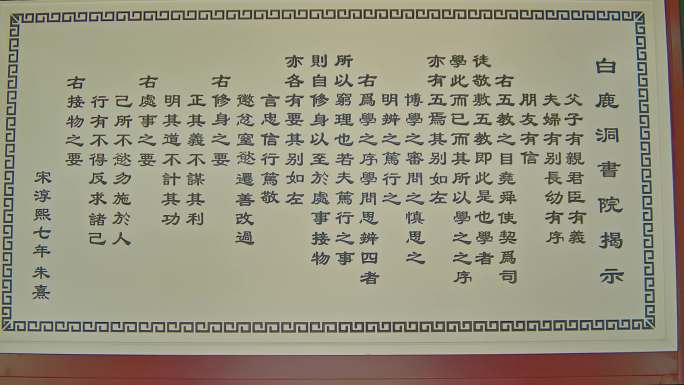 白鹿洞書院揭示
父子有親君臣有義
夫婦有別長幼有序
朋友有信
右五教之目堯舜使契爲司
徒敬敷五教即此是也學者
學此而已而其所以學之之序
亦有五焉其別如左
博學之審問之慎思之
明辨之篤行之
右爲學之序學問思辨四者
所以窮理也若夫篤行之事
則自修身以至於處事接物
亦各有要其別如左
言忠信行篤敬
懲忿窒慾遷善改過
右修身之要
正其義不謀其利
明其道不計其功
右處事之要
己所不慾勿施於人
行有不得反求諸己
右接物之要
宋淳熙七年朱熹